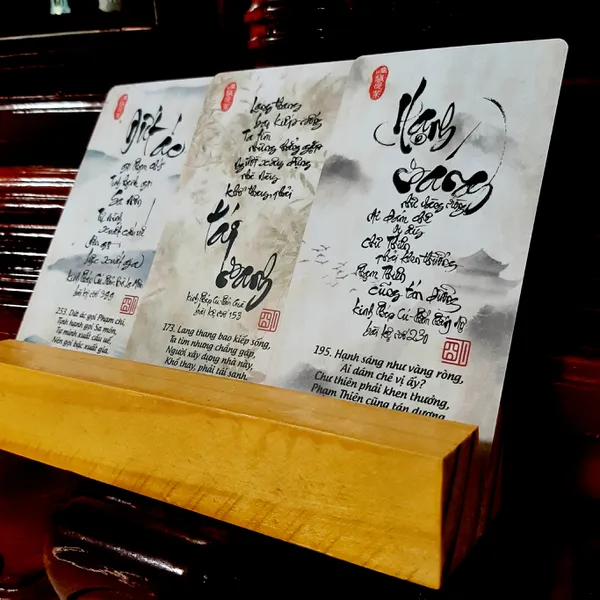 dứt ác
gọi Phạm chí
Tịnh hạnh gọi
Sa môn
Tự mình
xuất cấu uế
Nên gọi
bậc xuất gia
Kinh Pháp Cú - Phẩm Bà La Môn
bài kệ số 388
253. Dứt ác gọi Phạm chí,
Tịnh hạnh gọi Sa môn,
Tự mình xuất cấu uế,
Nên gọi bậc xuất gia.
Lang thang
bao kiếp sống
Ta tìm
nhưng chẳng gặp
Người xây dựng
nhà này
khổ thay, phải
tái sanh
Kinh Pháp Cú - Phẩm Già
bài kệ số 153
173. Lang thang bao kiếp sống,
Ta tìm nhưng chẳng gặp,
Người xây dựng nhà này,
Khổ thay, phải tái sanh.
Hạnh
sáng
như vàng ròng
Ai dám chê
vị ấy
Chư Thiên
phải khen thưởng
Phạm Thiên
cũng tán dương
Kinh Pháp Cú - Phẩm Phẫn Nộ
bài kệ số 230
195. Hạnh sáng như vàng ròng,
Ai dám chê vị ấy?
Chư thiên phải khen thưởng,
Phạm Thiên cũng tán dương.